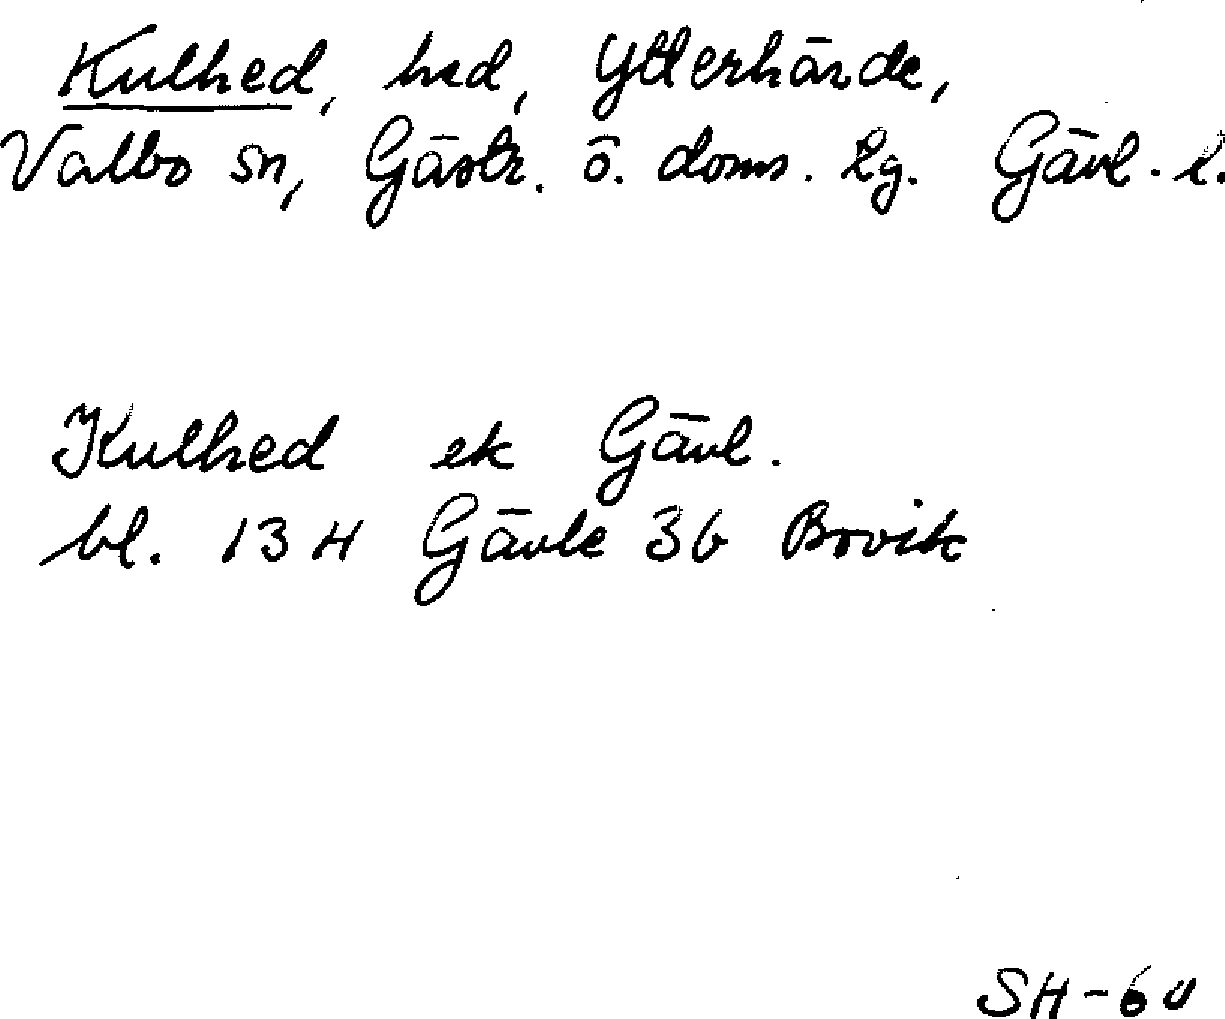 Kulhed, hed, Ytterhärde,
Valbo sn, Gästr. ö. doms. lg. Gävl. l.
Kulhed ek Gävl.
bl. 13 H Gävle 3b Bovik
SH-60